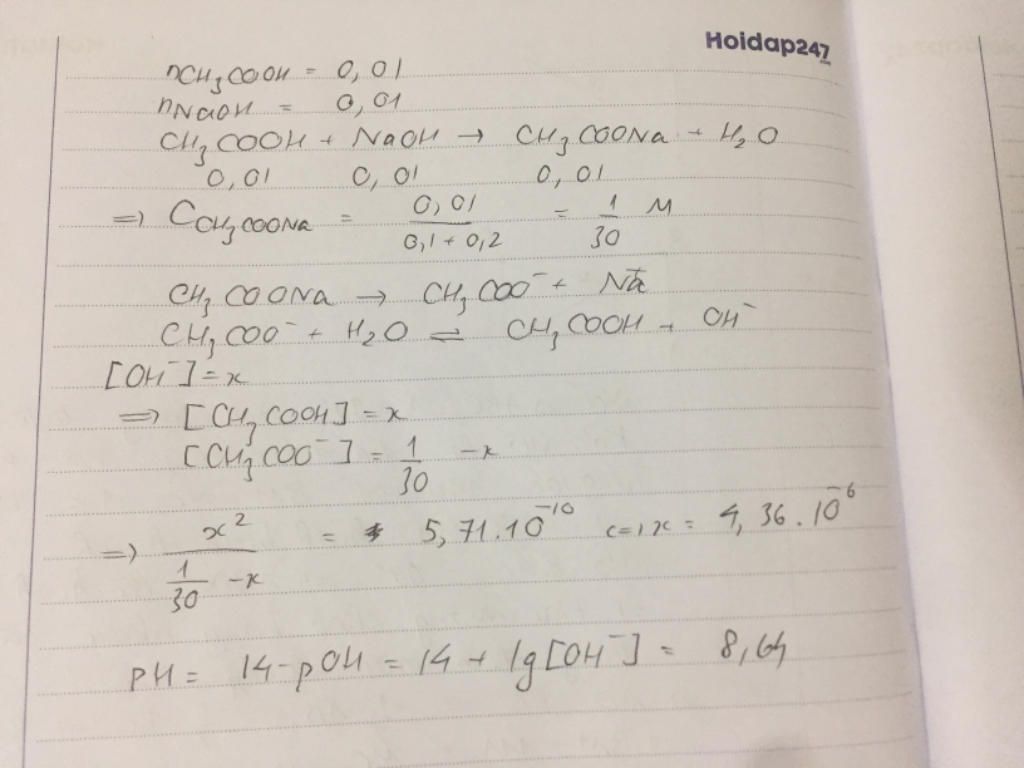 Hoidap247
nCH₃COOH = 0,01
nNaOH = 0,01
CH₃COOH + NaOH → CH₃COONa + H₂O
0,01 0,01 0,01
=> C CH₃COONa = 0,01/(0,1+0,2) = 1/30 M
CH₃COONa → CH₃COO⁻ + Na⁺
CH₃COO⁻ + H₂O ⇌ CH₃COOH + OH⁻
[OH⁻] = x
=> [CH₃COOH] = x
[CH₃COO⁻] = 1/30 - x
=> x²/(1/30 - x) = 5,71.10⁻¹⁰ <=> x = 4,36.10⁻⁶
PH = 14 - pOH = 14 + lg[OH⁻] = 8,64